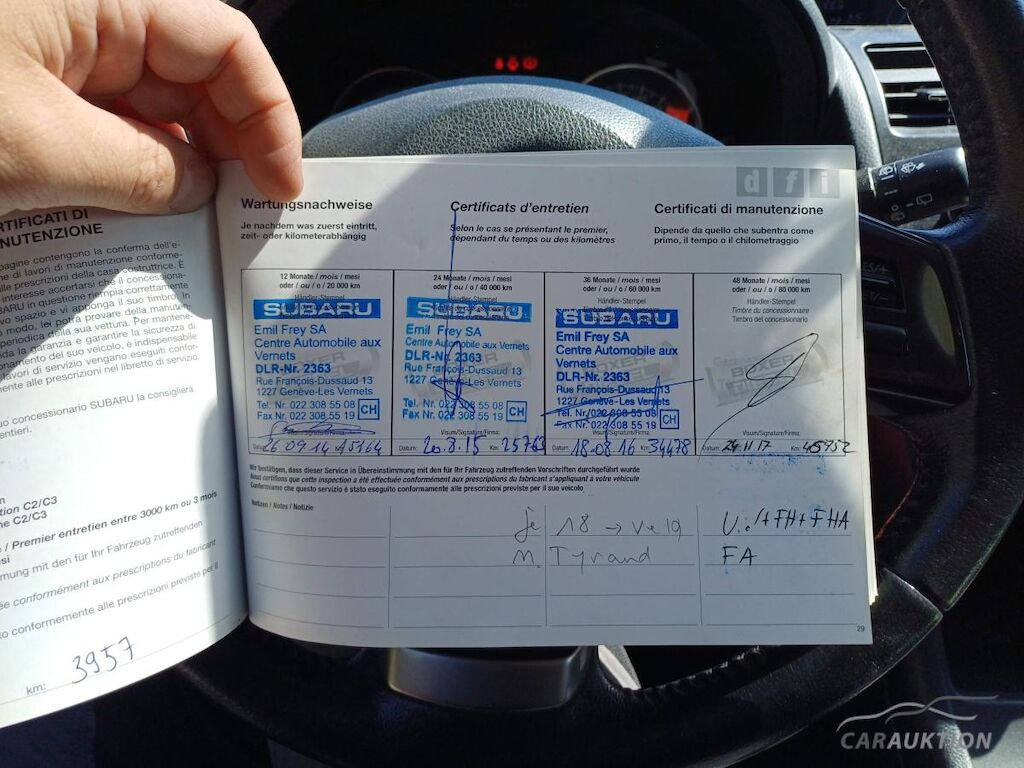 RTIFICATI DI
NUTENZIONE
pagine contengono la conferma dell'e-
ne di lavori di manutenzione conforme-
prescrizioni della casa costruttrice. È
interesse accertarsi che il concessiona-
BARU in questione riempia correttamente
vo spazio e vi apponga il suo timbro. In
modo, lei potrà provare della manut
periodica della sua vettura. Per mantene-
da la garanzia e garantire la sicurezza di
onamento del suo veicolo, è indispensabile
lavori di servizio vengano eseguiti confor-
mente alle prescrizioni nel libretto di servizio.
uo concessionario SUBARU la consiglierà
entieri.
tion C2/C3
ne C2/C3
/ Premier entretien entre 3000 km ou 3 mois
esi
mmung mit den für Ihr Fahrzeug zutreffenden
ée conformément aux prescriptions du fabricant
to conformemente alle prescrizioni previste per il
km: 3957
dfi
Wartungsnachweise
Je nachdem was zuerst eintritt,
zeit- oder kilometerabhängig
Certificats d'entretien
Selon le cas se présentant le premier,
dépendant du temps ou des kilomètres
Certificati di manutenzione
Dipende da quello che subentra come
primo, il tempo o il chilometraggio
12 Monate / mois / mesi
oder / ou / o / 20 000 km
Händler-Stempel
SUBARU
Emil Frey SA
Centre Automobile aux
Vernets
DLR-Nr. 2363
Rue François-Dussaud 13
1227 Genève-Les Vernets
Tel. Nr. 022 308 55 08
Fax Nr. 022 308 55 19 CH
Datum: 26 09 14 15164
24 Monate / mois / mesi
oder / ou / o / 40 000 km
Händler-Stempel
SUBARU
Emil Frey SA
Centre Automobile aux Vernets
DLR-Nr. 2363
Rue François-Dussaud 13
1227 Genève-Les Vernets
Tel. Nr. 022 308 55 08
Fax Nr. 022 308 55 19 CH
Visum/Signature/Firma:
Datum: 20.8.15 Km: 25763
36 Monate / mois / mesi
oder / ou / o / 60 000 km
Händler-Stempel
SUBARU
Emil Frey SA
Centre Automobile aux
Vernets
DLR-Nr. 2363
Rue François-Dussaud 13
1227 Genève-Les Vernets
Tel. Nr. 022 308 55 08
Fax Nr. 022 308 55 19 CH
Visum/Signature/Firma:
Datum: 18.08.16 Km: 34478
48 Monate / mois / mesi
oder / ou / o / 80 000 km
Händler-Stempel
Timbre du concessionnaire
Timbro del concessionario
Visum/Signature/Firma:
Datum: 24.11.17 Km: 45952
Wir bestätigen, dass dieser Service in Übereinstimmung mit den für Ihr Fahrzeug zutreffenden Vorschriften durchgeführt wurde
Nous certifions que cette inspection a été effectuée conformément aux prescriptions du fabricant s'appliquant à votre véhicule
Confermiamo che questo servizio è stato eseguito conformamente alle prescrizioni previste per il suo veicolo
Notizen / Notes / Notizie
je 18 → Velg
M. Tyrand
FH+FHA
FA
29
CARAUKTION